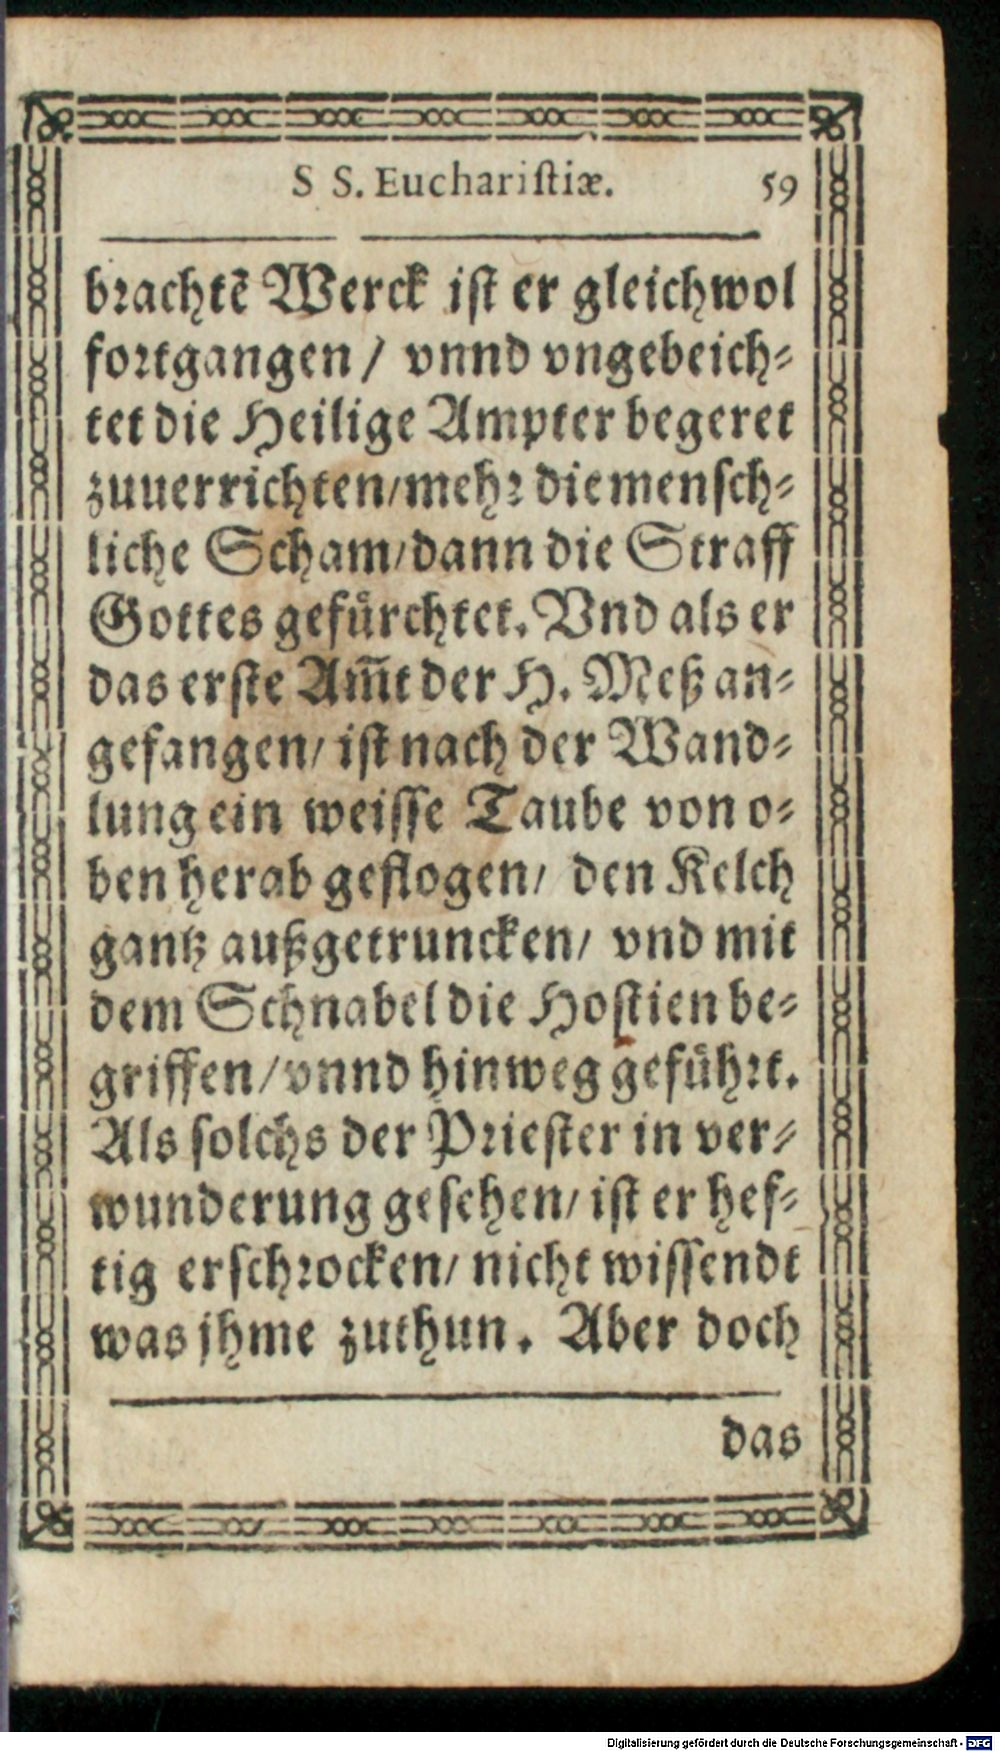 S S. Euchariſtiæ. 59
brachtē Werck iſt er gleichwol
fortgangen / vnnd vngebeich⸗
tet die Heilige Ampter begeret
zuuerrichten / mehr die menſch⸗
liche Scham / dann die Straff
Gottes gefuͤrchtet. Vnd als er
das erſte Am̃t der H. Meß an⸗
gefangen / iſt nach der Wand⸗
lung ein weiſſe Taube von o⸗
ben herab geflogen / den Kelch
gantz außgetruncken / vnd mit
dem Schnabel die Hoſtien be⸗
griffen / vnnd hinweg gefuͤhrt.
Als ſolchs der Prieſter in ver⸗
wunderung geſehen / iſt er hef⸗
tig erſchrocken / nicht wiſſendt
was jhme zuthun. Aber doch
das
Digitalisierung gefördert durch die Deutsche Forschungsgemeinschaft - DFG